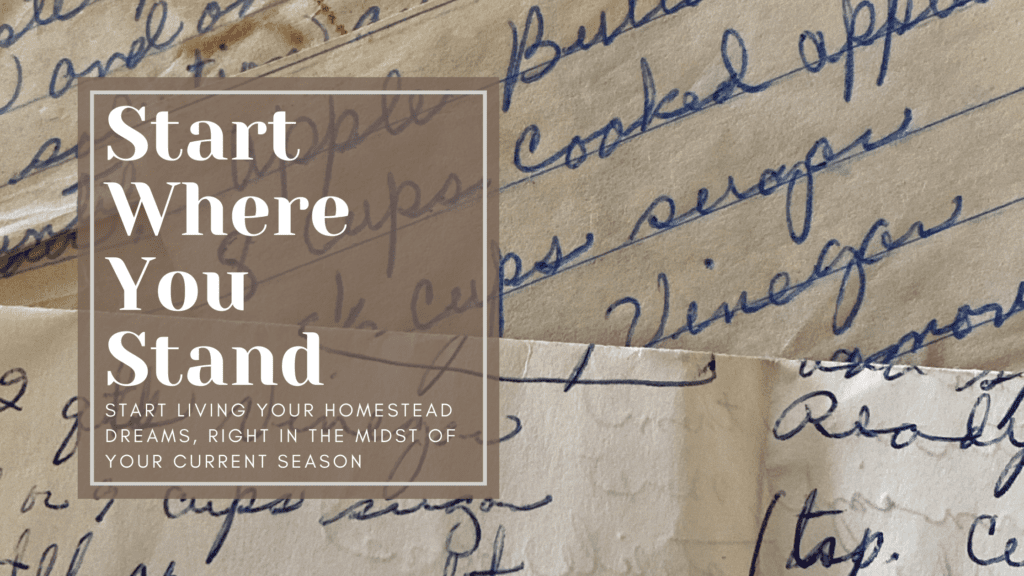 and
Apple Butter
8 cups cooked apple
cups sugar
Vinegar
Start
Where
You
Stand
START LIVING YOUR HOMESTEAD
DREAMS, RIGHT IN THE MIDST OF
YOUR CURRENT SEASON
Ready
2 Vinegar
or 9 cups sugar
1 tsp.
Pt